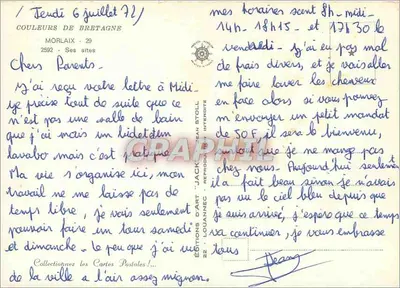 ( Jeudi 6 juillet 72)
COULEURS DE BRETAGNE
MORLAIX - 29
2592 - Ses sites
Chers Parents.
J'ai reçu votre lettre à Midi
je précise tout de suite que ce
n'est pas une salle de bain
que j'ai mais un bidet et un
lavabo mais c'est pratique
Ma vie s'organise ici, mon
travail ne me laisse pas de
temps libre, je vais seulement
pouvoir faire un tour samedi
et dimanche. le peu que j'ai vu
Collectionnez les Cartes Postales !...
de la ville a l'air assez mignon.
EDITIONS D'ART JACK
22 - LOUANNEC - REPRODUCTION INTERDITE
JEAN STOLL
mes horaires sont 8h - midi -
14h - 18h15 - et 17h30 le
vendredi - J'ai eu pas mal
de frais divers, et je vais aller
me faire laver les cheveux
en face alors si vous pouviez
m'envoyer un petit mandat
de 50F, il sera le bienvenu,
surtout que je ne mange pas
chez nous. Aujourd'hui seulement
il a fait beau sinon je n'avais
pas vu le ciel bleu depuis que
je suis arrivé, j'espère que ce temps
va continuer, je vous embrasse
tous
CPAPHIL